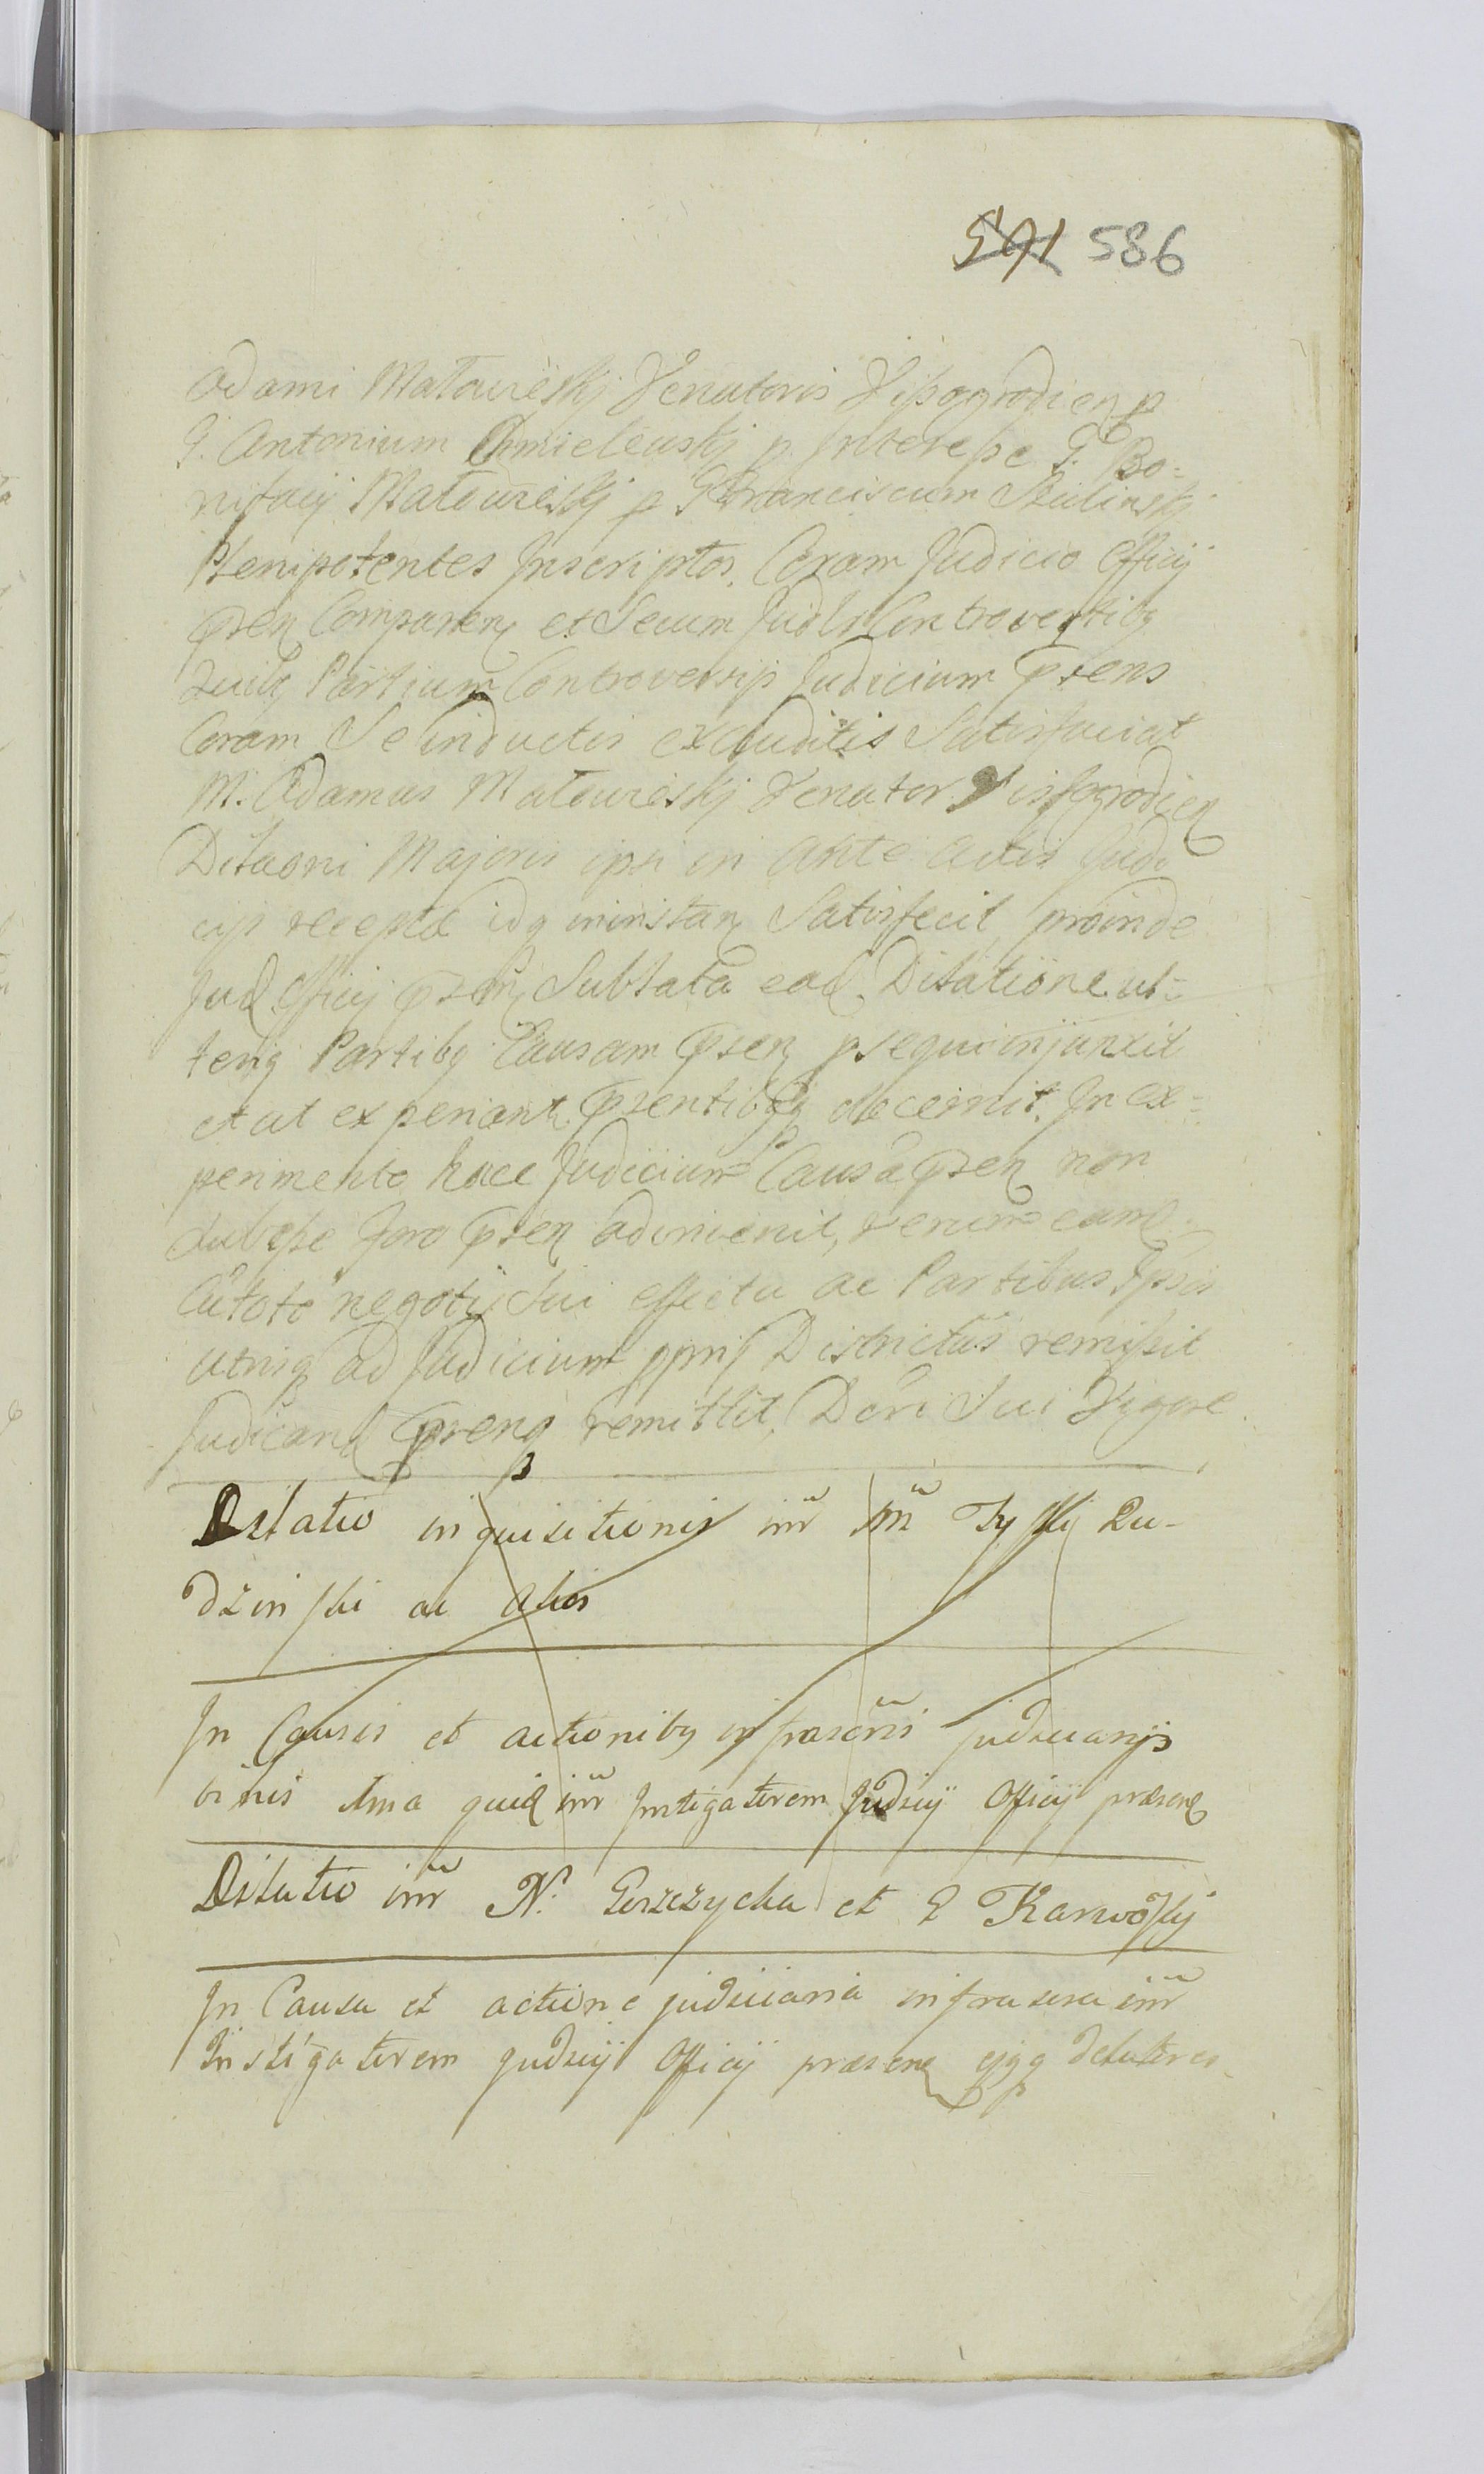 591 586
Adami Matowieskj Venatoris Vissogrodien p
G. Antonium Chmielewskj p. Interesse G. Bo-
nifacij Matowieskj p G Franciscum Szulinskj
Plenipotentes Inscriptos. Coram Judicio Officij
pñen Comparen et Secum Judlr Controvertibq
Quibq Partium Controversijs Judicium pñens
Coram Se inductis exauditis Satisfaciat
M. Adamus Matowieskj Venator Vissogrodien
Dilaoni Majoris ipsi in Ante Actis Judi
cijs recepta idq ininstan Satisfecit, proinde
Jud Officij pñen Sublata ead. Dilatione ul-
terig Partibq Causam pñen psequi injunxit
et ut experiant pñentibq decernit. In ex-
perimento hace Judicium Causã pñen non
subesse foro pñen adinvenit, verum eand
Cũ toto negotij Sui effectu ac Partibus Ipsis
utrisq ad Judicium ppriũ Districtus remissit
Judicand remittit, Dcri Sui Vigore
Dilatio inquisitionis inr M Tyskj Ru-
dzinski ac alios
In Causis et actionibq infrascriis judiciarijs
binis Una quid inr Instigatorem Judicij Officij præsen
Dilatio inr N. Gorzczycka et G Karwoskj
In Causa et actione judiciaria infrascra inr
Instigatorem Judicij Officij præsen ejqq delatores